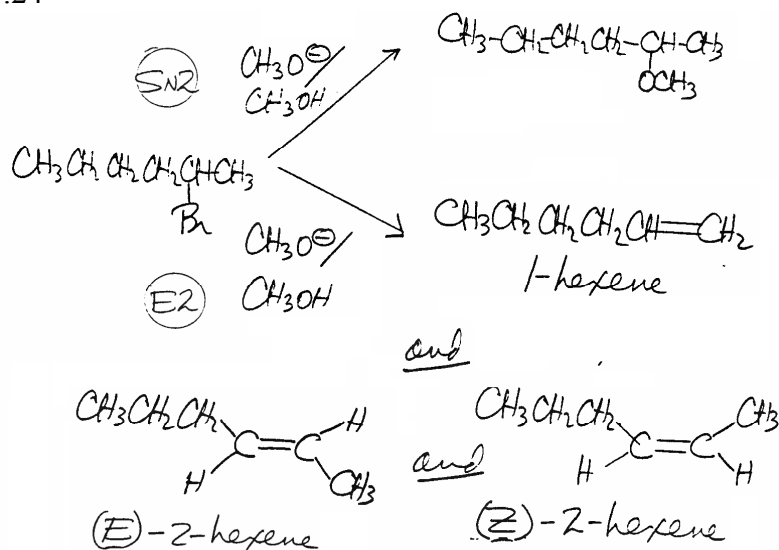 .24
SN2
CH3O⊖/
CH3OH
CH3-CH2-CH2CH2-CH-CH3
OCH3
CH3CH2CH2CH2CHCH3
Br
CH3O⊖/
CH3OH
E2
CH3CH2CH2CH2CH=CH2
1-hexene
and
CH3CH2CH2 C=C H
H CH3
(E)-2-hexene
and
CH3CH2CH2 C=C CH3
H H
(Z)-2-hexene